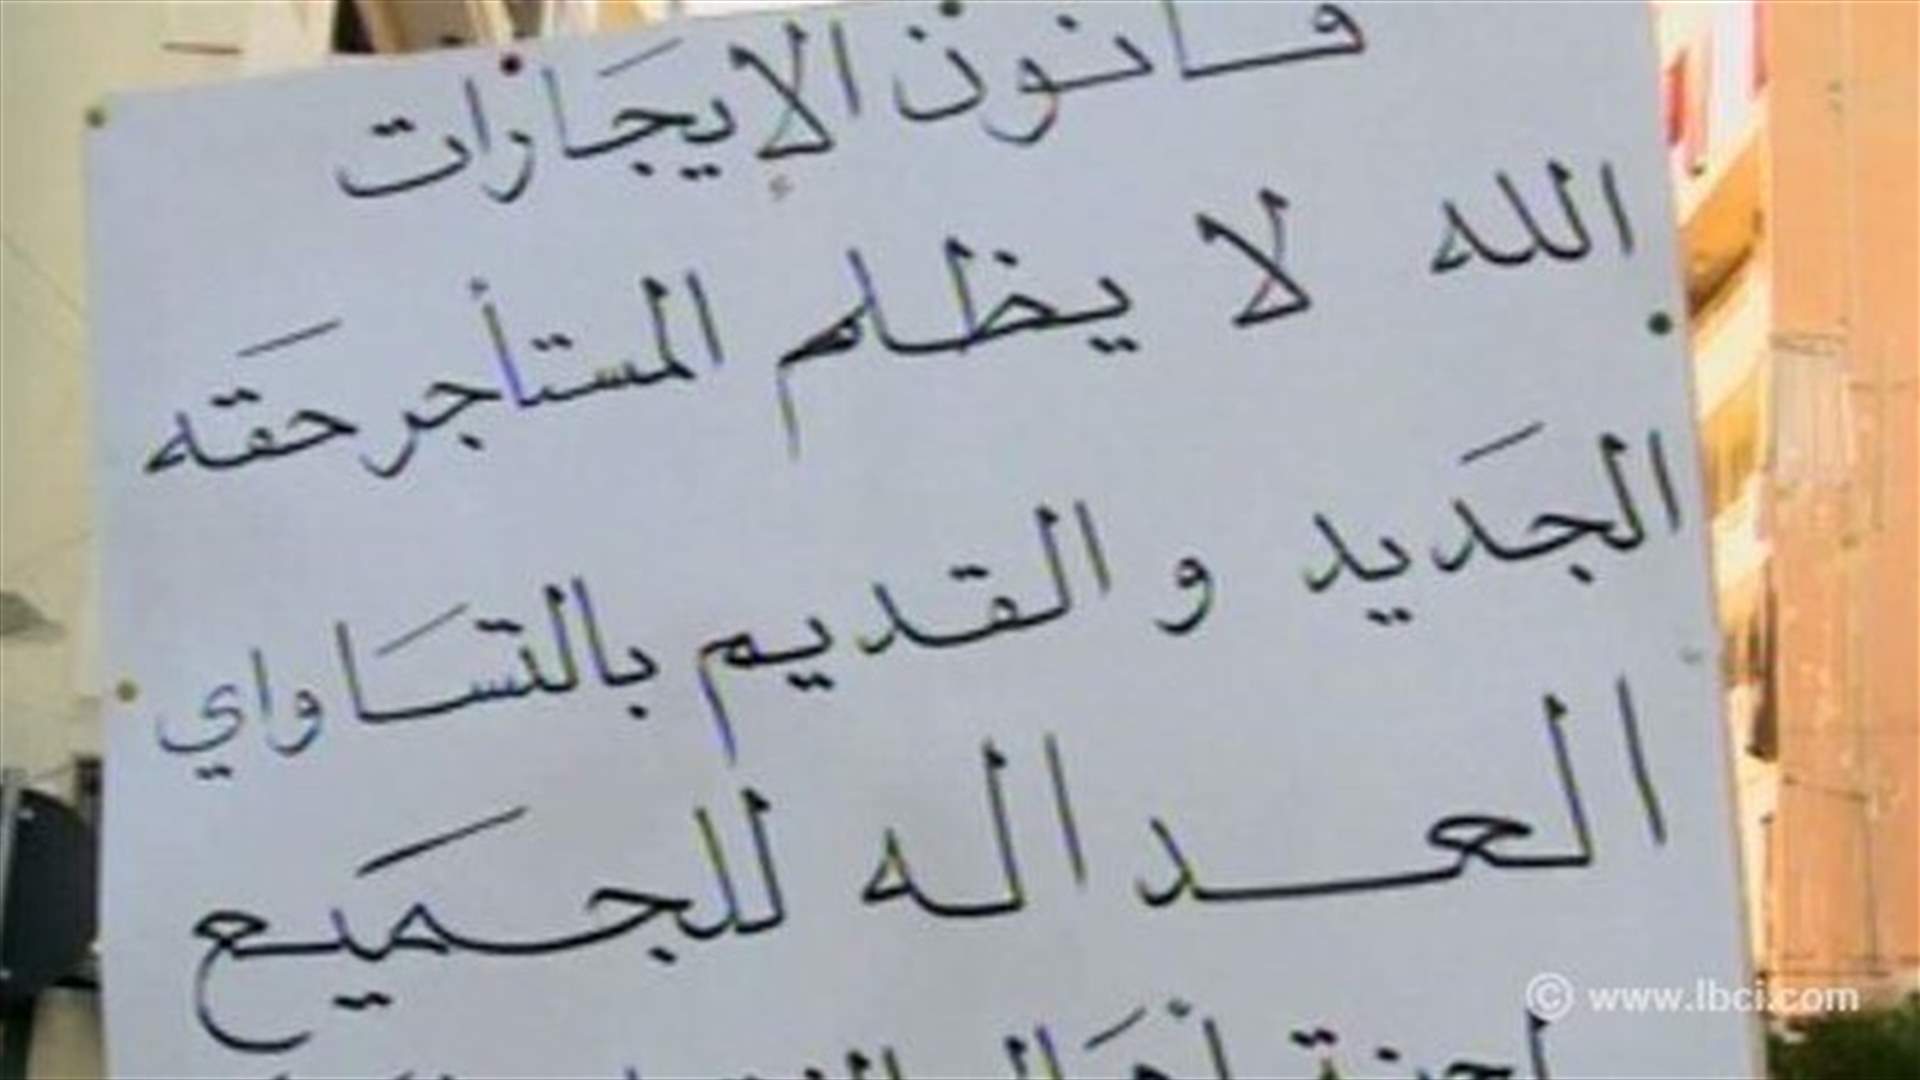 قانون الإيجَارات
الله لا يظلم المستأجر حقَه
الجَديد و القديم بالتسَاواي
العداله للجمَيع
لجنة أهَالي
© www.lbci.com